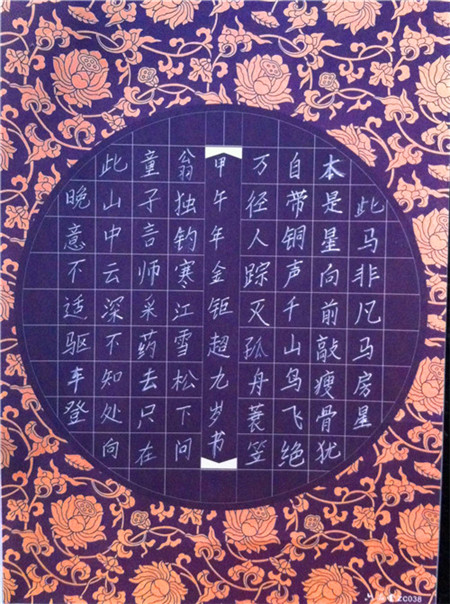 此马非凡马房星
本是星向前敲瘦骨犹
自带铜声千山鸟飞绝
万径人踪灭孤舟蓑笠
甲午年金钜超九岁书
翁独钓寒江雪松下问
童子言师采药去只在
此山中云深不知处向
晚意不适驱车登
ZC038